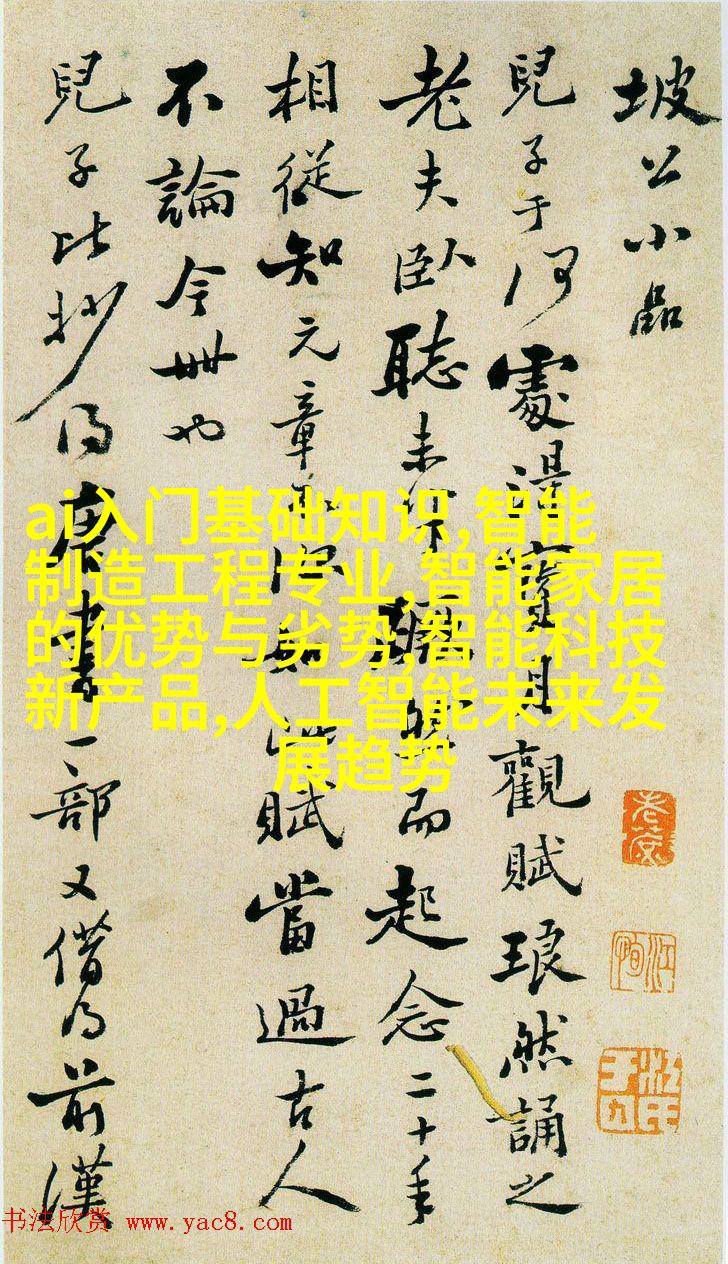 坡公小品
兒子于何處得寶月觀賦琅然誦之
老夫臥聽未半躍然而起念二十年
相從知元章不盡若此賦當過古人
不論今世也
兒子比抄得唐書一部又借得前漢
ai入门基础知识,智能
制造工程专业,智能家居
的优势与劣势,智能科技
新产品,人工智能未来发
展趋势
书法欣赏 www.yac8.com